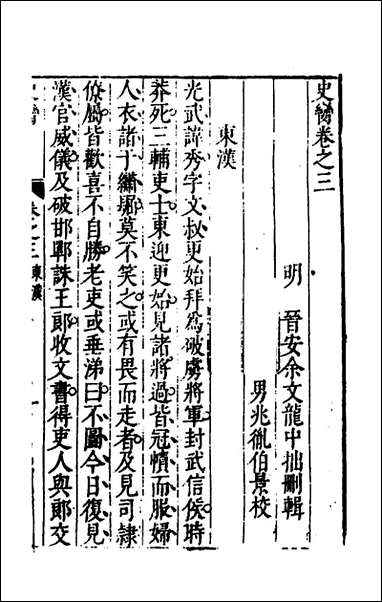 史臠卷之三
明　晉安余文龍中拙刪輯
男兆胤伯景校
東漢
光武諱秀字文叔更始拜為破虜將軍封武信侯時
莽死三輔吏士東迎更始見諸將過皆冠幘而服婦
人衣諸于繡䘿莫不笑之或有畏而走者及見司隷
僚屬皆歡喜不自勝老吏或垂涕曰不圖今日復見
漢官威儀及破邯鄲誅王郞收文書得吏人與郞交
卷之三東漢
一